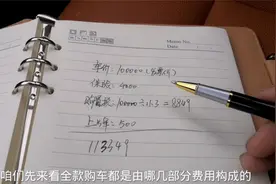 Memo No.
Date
车价: 100000
保险: 4900
购置税: 100000÷11.3=8849
上牌: 500
113349
咱们先来看全款购车都是由哪几部分费用构成的